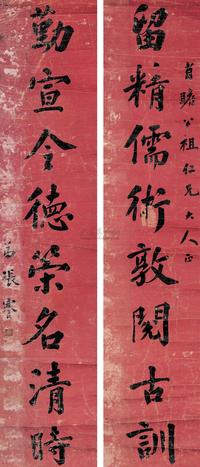 肖瞻公祖仁兄大人正
留精儒術敦閱古訓
勤宣令德榮名清時
張謇